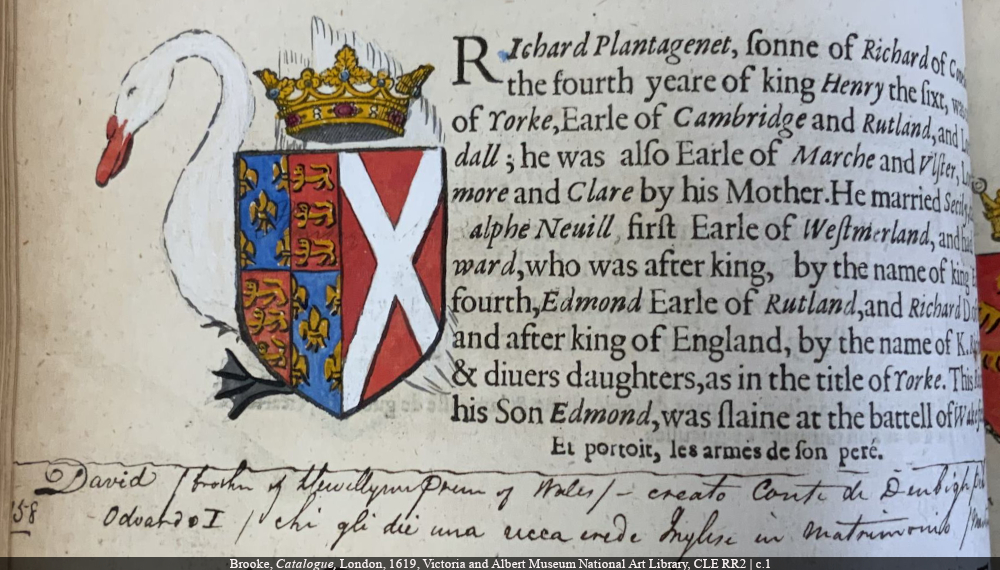 RIchard Plantagenet, ſonne of Richard of
the fourth yeare of king Henry the ſixt,
of Yorke, Earle of Cambridge and Rutland, and
dall; he was alſo Earle of Marche and Vlſter,
more and Clare by his Mother. He married
alphe Neuill firſt Earle of Weſtmerland, and
ward, who was after king, by the name of king
fourth, Edmond Earle of Rutland, and Richard
and after king of England, by the name of K.
& diuers daughters, as in the title of Yorke. This
his Son Edmond, was ſlaine at the battell of
Et portoit, les armes de ſon peré.
David / brother of Llewellyn Prin of Wales / - creato Conte di Denbigh
58 Odoardo I / chi gli die una ricca erede Inglese in matrimonio /
Brooke, Catalogue, London, 1619, Victoria and Albert Museum National Art Library, CLE RR2 | c.1